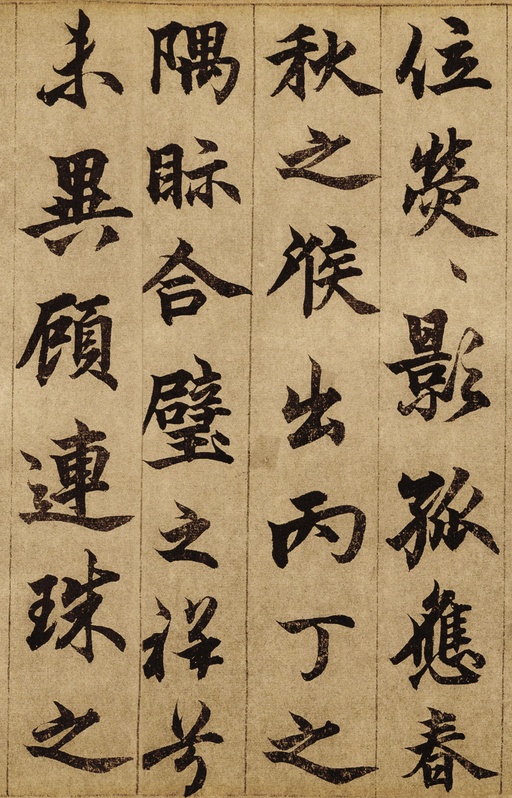 位熒〻影孤應春
秋之候出丙丁之
隅眎合璧之祥兮
未異顧連珠之